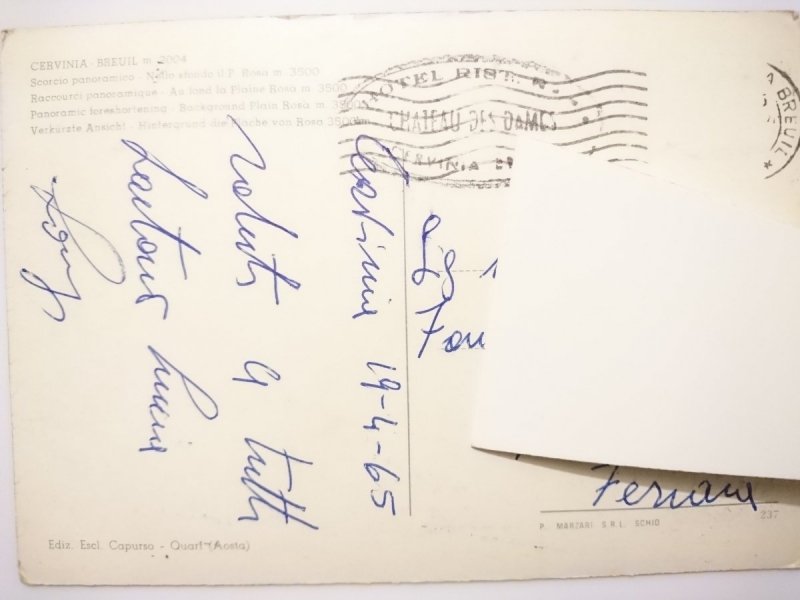 CERVINIA - BREUIL m. 2004
Scorcio panoramico - Nello sfondo il P. Rosa m. 3500
Raccourci panoramique - Au fond la Plaine Rosa m. 3500
Panoramic foreshortening - Background Plain Rosa m. 3500
Verkürzte Ansicht - Hintergrund die Fläche von Rosa 3500
HOTEL RIST.
CHATEAU DES DAMES
CERVINIA
BREUIL
Cervinia 19-4-65
Saluti a tutti
Fami
Ferrara
P. MARZARI S.R.L. SCHIO
237
Ediz. Escl. Capurso - Quart (Aosta)